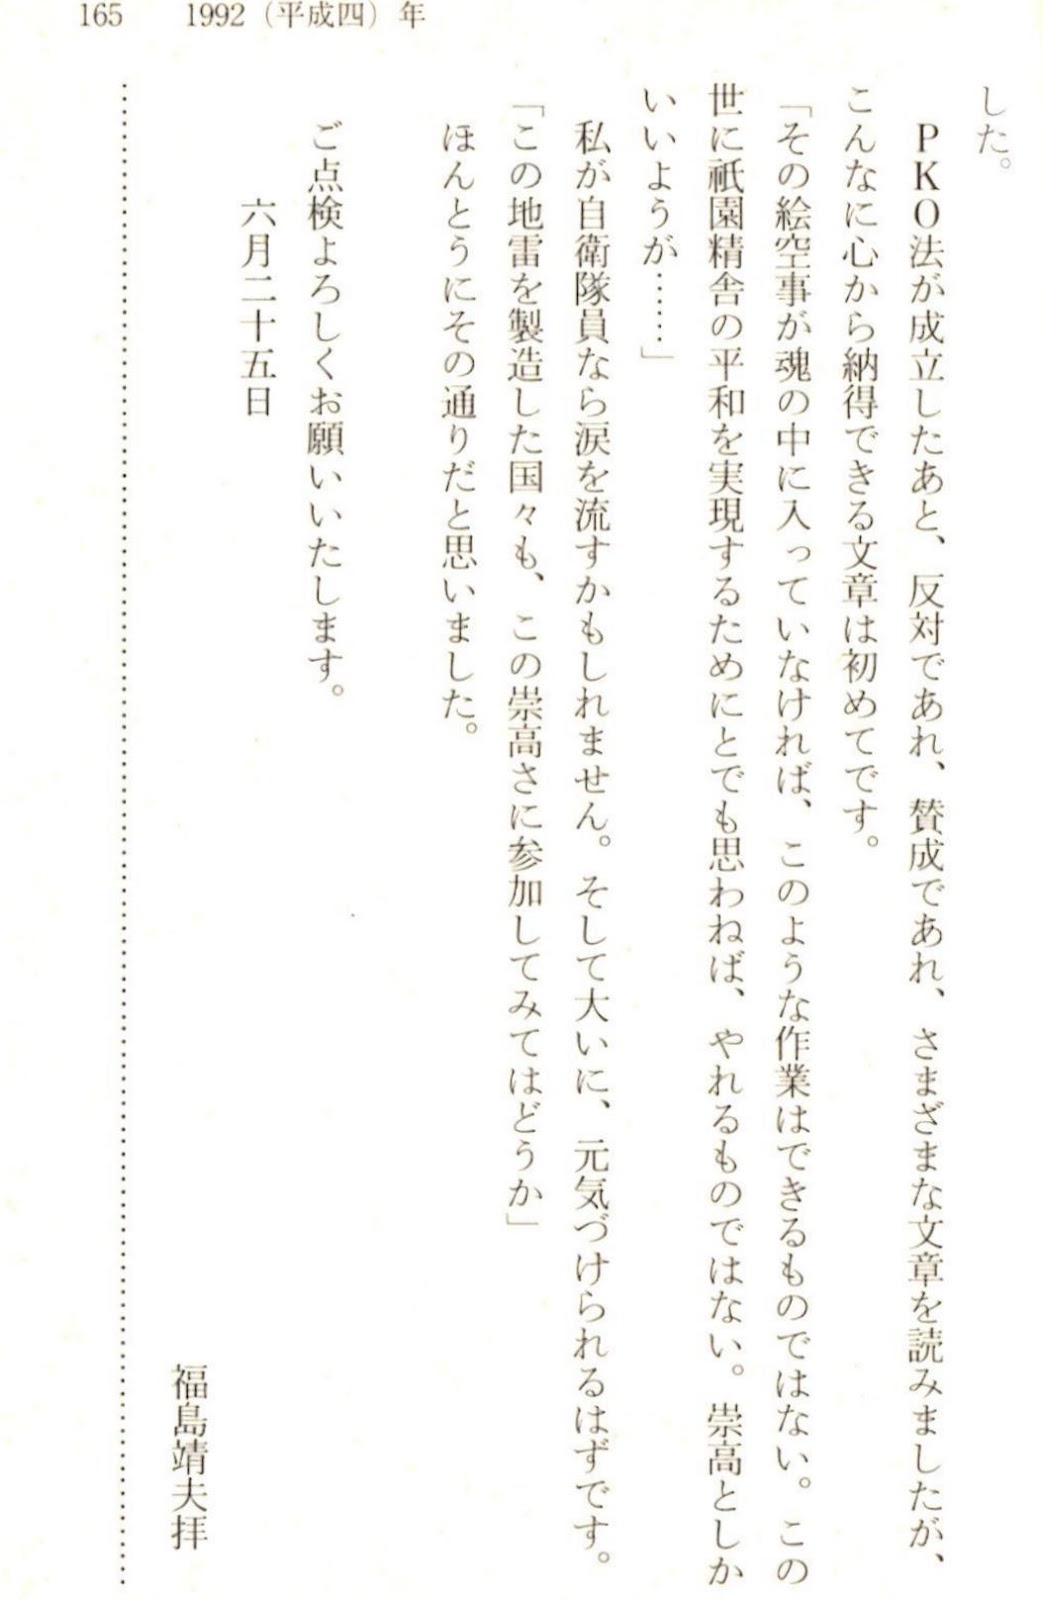 165　1992（平成四）年
した。
　ＰＫＯ法が成立したあと、反対であれ、賛成であれ、さまざまな文章を読みましたが、
こんなに心から納得できる文章は初めてです。
「その絵空事が魂の中に入っていなければ、このような作業はできるものではない。この
世に祇園精舎の平和を実現するためにとでも思わねば、やれるものではない。崇高としか
いいようが……」
　私が自衛隊員なら涙を流すかもしれません。そして大いに、元気づけられるはずです。
「この地雷を製造した国々も、この崇高さに参加してみてはどうか」
　ほんとうにその通りだと思いました。
　ご点検よろしくお願いいたします。
　　　六月二十五日
福島靖夫拝